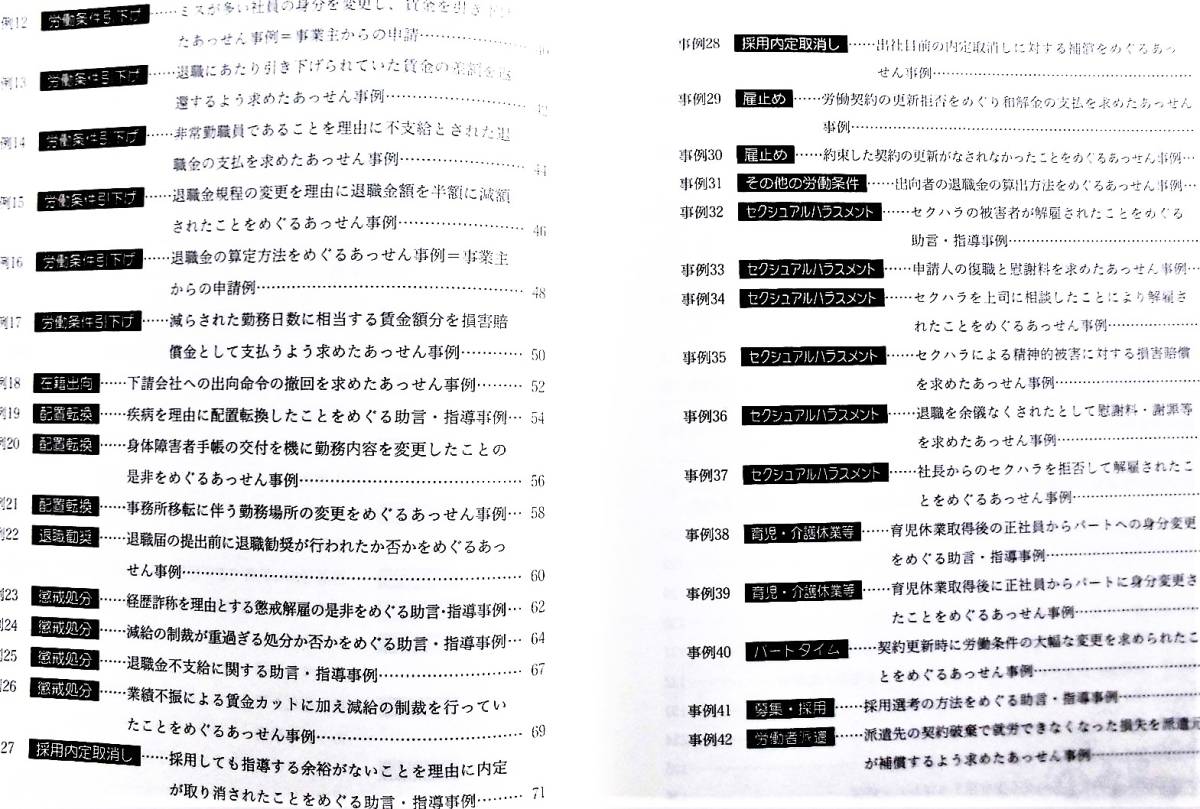 例12 労働条件引下げ……ミスが多い社員の身分を変更し、賃金を引き下げ
たあっせん事例＝事業主からの申請……
例13 労働条件引下げ……退職にあたり引き下げられていた賃金の差額を返
還するよう求めたあっせん事例…… 42
例14 労働条件引下げ……非常勤職員であることを理由に不支給とされた退
職金の支払を求めたあっせん事例…… 44
例15 労働条件引下げ……退職金規程の変更を理由に退職金額を半額に減額
されたことをめぐるあっせん事例…… 46
例16 労働条件引下げ……退職金の算定方法をめぐるあっせん事例＝事業主
からの申請例…… 48
例17 労働条件引下げ……減らされた勤務日数に相当する賃金額分を損害賠
償金として支払うよう求めたあっせん事例…… 50
例18 在籍出向……下請会社への出向命令の撤回を求めたあっせん事例…… 52
例19 配置転換……疾病を理由に配置転換したことをめぐる助言・指導事例… 54
例20 配置転換……身体障害者手帳の交付を機に勤務内容を変更したことの
是非をめぐるあっせん事例…… 56
例21 配置転換……事務所移転に伴う勤務場所の変更をめぐるあっせん事例… 58
例22 退職勧奨……退職届の提出前に退職勧奨が行われたか否かをめぐるあっ
せん事例…… 60
例23 懲戒処分……経歴詐称を理由とする懲戒解雇の是非をめぐる助言・指導事例… 62
例24 懲戒処分……減給の制裁が重過ぎる処分か否かをめぐる助言・指導事例… 64
例25 懲戒処分……退職金不支給に関する助言・指導事例…… 67
例26 懲戒処分……業績不振による賃金カットに加え減給の制裁を行ってい
たことをめぐるあっせん事例…… 69
27 採用内定取消し……採用しても指導する余裕がないことを理由に内定
が取り消されたことをめぐる助言・指導事例…… 71
事例28 採用内定取消し……出社日前の内定取消しに対する補償をめぐるあっ
せん事例……
事例29 雇止め……労働契約の更新拒否をめぐり和解金の支払を求めたあっせん
事例……
事例30 雇止め……約束した契約の更新がなされなかったことをめぐるあっせん事例…
事例31 その他の労働条件……出向者の退職金の算出方法をめぐるあっせん事例…
事例32 セクシュアルハラスメント……セクハラの被害者が解雇されたことをめぐる
助言・指導事例……
事例33 セクシュアルハラスメント……申請人の復職と慰謝料を求めたあっせん事例…
事例34 セクシュアルハラスメント……セクハラを上司に相談したことにより解雇さ
れたことをめぐるあっせん事例……
事例35 セクシュアルハラスメント……セクハラによる精神的被害に対する損害賠償
を求めたあっせん事例……
事例36 セクシュアルハラスメント……退職を余儀なくされたとして慰謝料・謝罪等
を求めたあっせん事例……
事例37 セクシュアルハラスメント……社長からのセクハラを拒否して解雇されたこ
とをめぐるあっせん事例……
事例38 育児・介護休業等……育児休業取得後の正社員からパートへの身分変更
をめぐる助言・指導事例……
事例39 育児・介護休業等……育児休業取得後に正社員からパートに身分変更さ
たことをめぐるあっせん事例……
事例40 パートタイム……契約更新時に労働条件の大幅な変更を求められたこ
とをめぐるあっせん事例……
事例41 募集・採用……採用選考の方法をめぐる助言・指導事例……
事例42 労働者派遣……派遣先の契約破棄で就労できなくなった損失を派遣元
が補償するよう求めたあっせん事例……